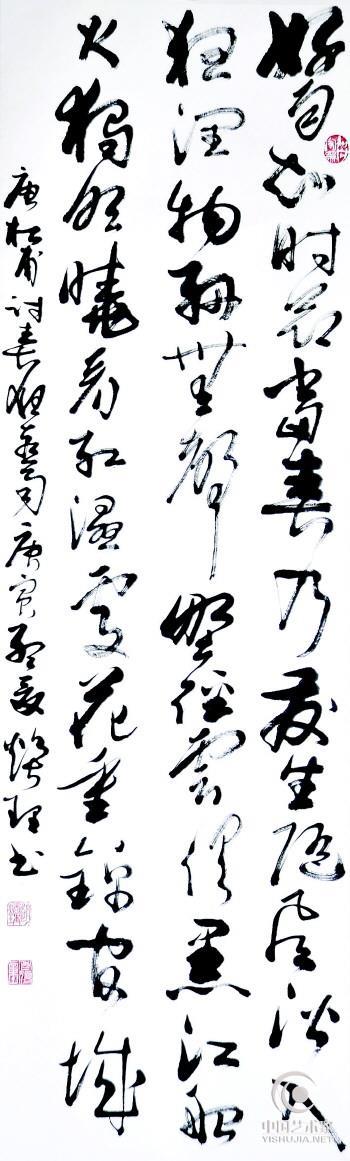 好雨知时节當春乃发生随风潜入
夜润物细無聲野径雲俱黑江船
火獨明曉看红濕處花重錦官城
唐杜甫诗春夜喜雨庚寅书
中国艺术家
YISHUJIA.NET